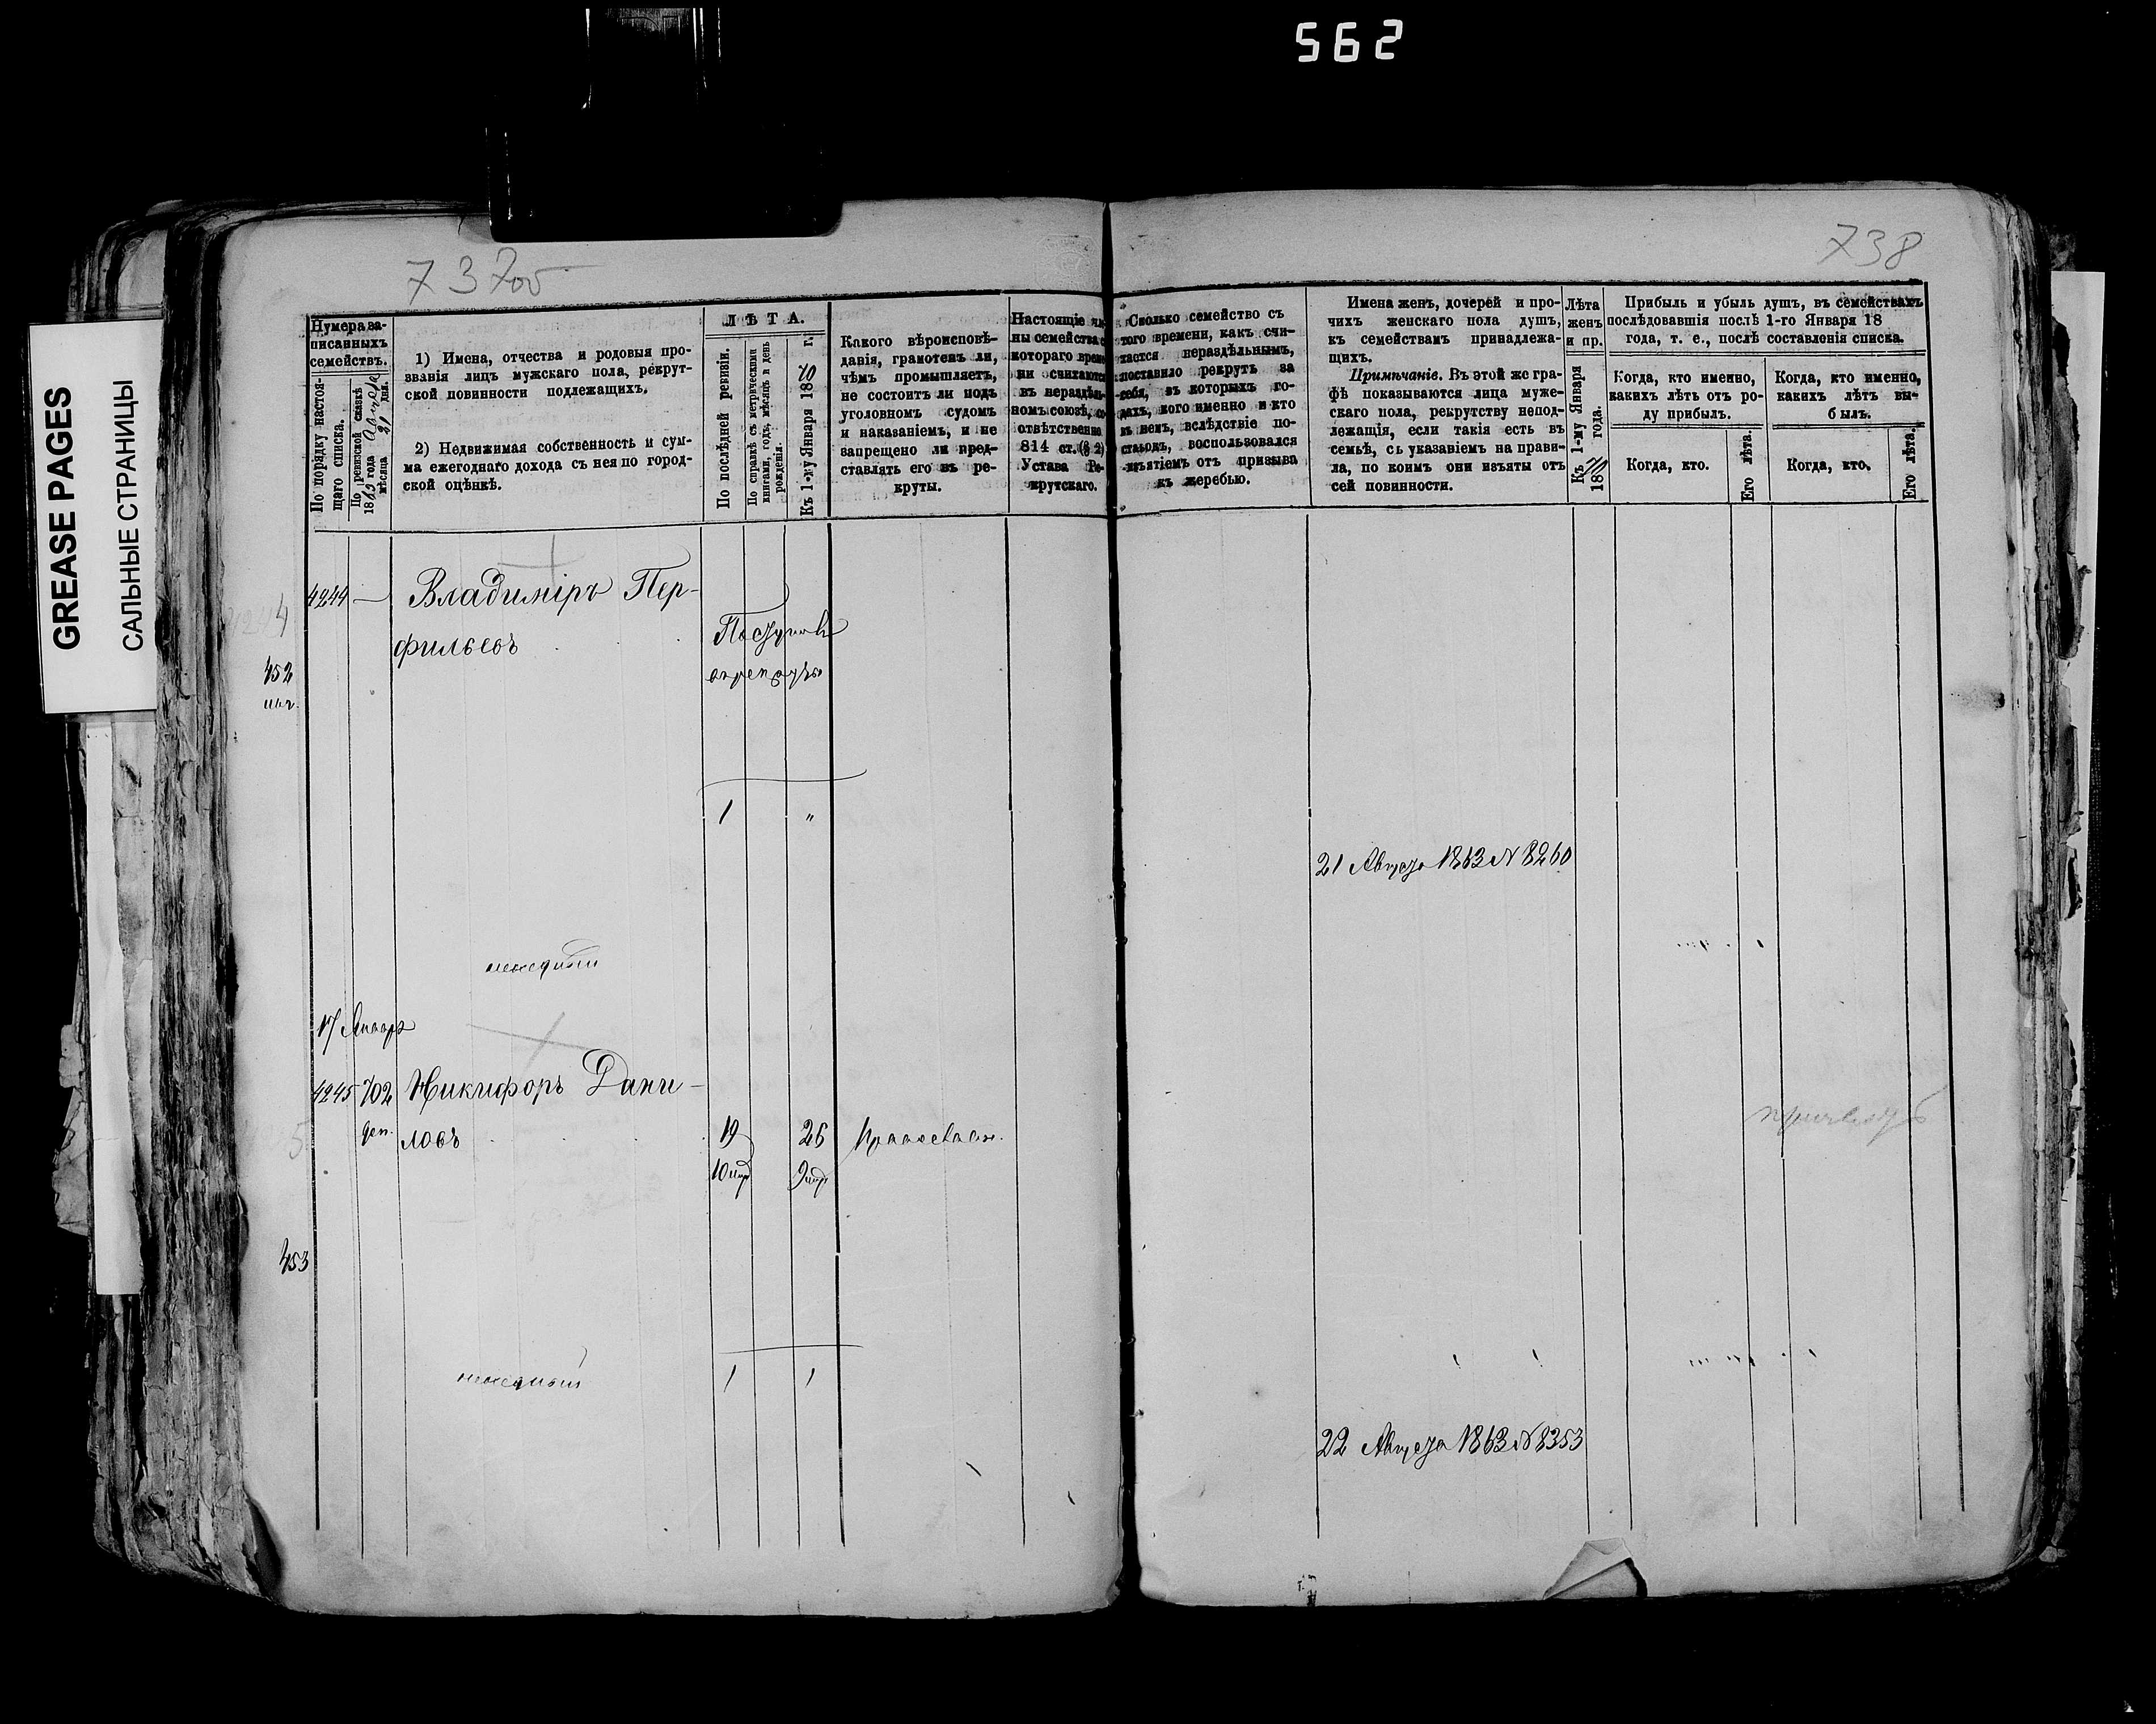 562
GREASE PAGES
САЛЬНЫЕ СТРАНИЦЫ
737об
738
Нумера за-
писанныхъ
семействъ.
По порядку настоя-
щаго списка.
По ревизской сказкѣ
1863 года
мѣсяца 21 дня.
1) Имена, отчества и родовыя про-
званія лицъ мужскаго пола, рекрут-
ской повинности подлежащихъ.
2) Недвижимая собственность и сум-
ма ежегоднаго дохода съ нея по город-
ской оцѣнкѣ.
ЛѢТА.
По послѣдней ревизіи.
По справкѣ съ метрическими
книгами, годъ, мѣсяцъ и день
рожденія.
Къ 1-му Января 1870 г.
Какого вѣроисповѣ-
данія, грамотенъ ли,
чѣмъ промышляетъ,
не состоитъ ли подъ
уголовномъ судомъ
и наказаніемъ, и не
запрещено ли пред-
ставлять его въ ре-
круты.
Настоящіе чле-
ны семейства с
котораго време-
ни считаются
въ нераздѣль-
номъ союзѣ, со-
отвѣтственно
814 ст. (§ 2)
Устава Ре-
крутскаго.
Сколько семейство съ
того времени, какъ счи-
тается нераздѣльнымъ,
поставило рекрутъ за
себя, въ которыхъ го-
дахъ, кого именно и кто
въ немъ, вслѣдствіе по-
ставокъ, воспользовался
изъятіемъ отъ призыва
къ жеребью.
Имена женъ, дочерей и про-
чихъ женскаго пола душъ,
къ семействамъ принадлежа-
щихъ.
Примѣчаніе. Въ этой же гра-
фѣ показываются лица муже-
скаго пола, рекрутству непод-
лежащія, если такія есть въ
семьѣ, съ указаніемъ на прави-
ла, по коимъ они изъяты отъ
сей повинности.
Лѣта
женъ
и пр.
Къ 1-му Января
1870 года.
Прибыль и убыль душъ, въ семействахъ
послѣдовавшія послѣ 1-го Января 18
года, т. е., послѣ составленія списка.
Когда, кто именно,
какихъ лѣтъ отъ ро-
ду прибылъ.
Когда, кто именно,
какихъ лѣтъ вы-
былъ.
Когда, кто.
Его лѣта.
Когда, кто.
Его лѣта.
4244 — Владиміръ Пер-
фильевъ
452
1 "
21 Августа 1863 N 8260
17 Января
4245 702 Никифоръ Дани-
ловъ 19 26 Православн.
453
1 1
22 Августа 1863 N 8353